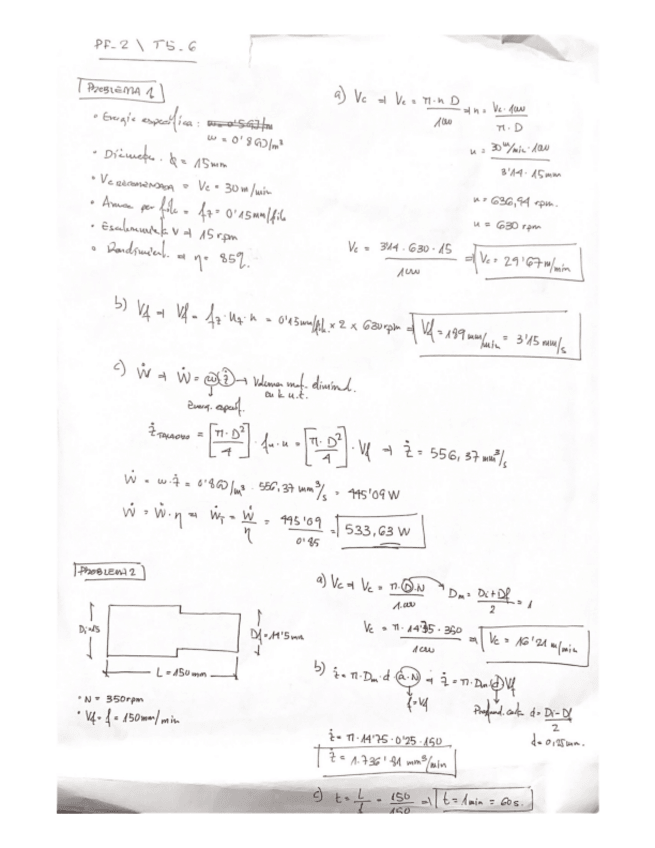 PF_2 \ T5_6
PROBLEMA 1
• Energía específica: w = 0'5 GJ/m
w = 0'8 GJ/m³
• Diámetro. ϕ = 15mm
• Vc RECOMENDADA = Vc = 30 m/min
• Avance por filo = fz = 0'15mm/filo
• V ⇒ 15 rpm
• Rendimiento ⇒ η = 85%.
a) Vc ⇒ Vc = π·n·D / 1000 ⇒ n = Vc·1000 / π·D
n = 30 m/min · 1000 / 3'14 · 15mm
n = 636,94 rpm.
n = 630 rpm
Vc = 3'14 · 630 · 15 / 1000 ⇒ Vc = 29'67 m/min
b) Vf ⇒ Vf = fz · nz · n = 0'15mm/fil. x 2 x 630rpm ⇒ Vf = 189 mm/min = 3'15 mm/s
c) Ẇ ⇒ Ẇ = w ż → Volumen mat. diminad.
en k u.t.
Energ. específ.
ż TALADRO = [π·D² / 4] · fn · n = [π·D² / 4] · Vf ⇒ ż = 556,37 mm³/s
Ẇ = w·ż = 0'8 GJ/m³ · 556,37 mm³/s = 445'09 W
Ẇ = Ẇ·η ⇒ ẆT = Ẇ / η = 445'09 / 0'85 = 533,63 W
PROBLEMA 2
Di=15
Df=14'5mm
L = 150mm
• N = 350rpm
• Vf = f = 150mm/min
a) Vc ⇒ Vc = π·D·N / 1.000 Dm = Di+Df / 2 = 1
Vc = π · 14'75 · 350 / 1000 ⇒ Vc = 16'21 m/min
b) ż = π·Dm·d (a·N) ⇒ ż = π·Dm·d·Vf
f=Vf
Profund. corte d = Di-Df / 2
d = 0,25mm.
ż = π·14'75·0'25·150
ż = 1.736'91 mm³/min
c) t = L / f = 150 / 150 ⇒ t = 1min = 60s.